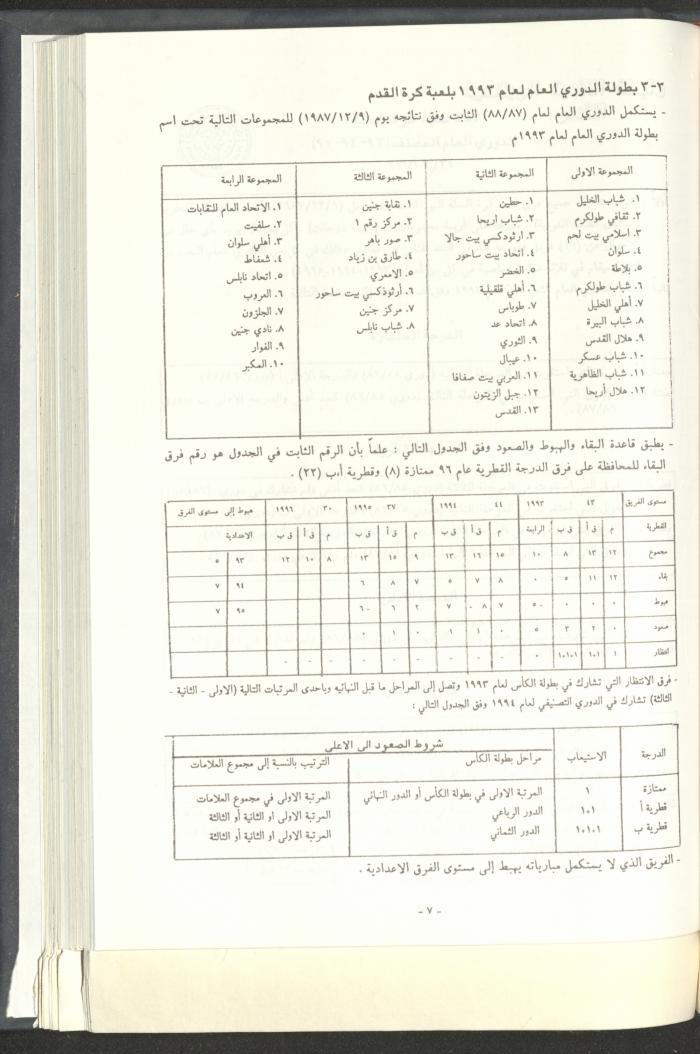 ٣-٣ بطولة الدوري العام لعام ١٩٩٣ بلعبة كرة القدم
- يستكمل الدوري العام لعام (٨٨/٨٧) الثابت وفق نتائجه يوم (١٩٨٧/١٢/٩) للمجموعات التالية تحت اسم
بطولة الدوري العام لعام ١٩٩٣م
المجموعة الاولى المجموعة الثانية المجموعة الثالثة المجموعة الرابعة
١. شباب الخليل ١. حطين ١. نقابة جنين ١. الاتحاد العام للنقابات
٢. ثقافي طولكرم ٢. شباب اريحا ٢. مركز رقم ١ ٢. سلفيت
٣. اسلامي بيت لحم ٣. ارثوذكسي بيت جالا ٣. صور باهر ٣. أهلي سلوان
٤. سلوان ٤. اتحاد بيت ساحور ٤. طارق بن زياد ٤. شعفاط
٥. بلاطة ٥. الخضر ٥. الامعري ٥. اتحاد نابلس
٦. شباب طولكرم ٦. أهلي قلقيلية ٦. أرثوذكسي بيت ساحور ٦. العروب
٧. أهلي الخليل ٧. طوباس ٧. مركز جنين ٧. الجلزون
٨. شباب البيرة ٨. اتحاد عد ٨. شباب نابلس ٨. نادي جنين
٩. هلال القدس ٩. الثوري ٩. الفوار
١٠. شباب عسكر ١٠. عيبال ١٠. المكبر
١١. شباب الظاهرية ١١. العربي بيت صفافا
١٢. هلال أريحا ١٢. جبل الزيتون
١٣. القدس
- يطبق قاعدة البقاء والهبوط والصعود وفق الجدول التالي : علماً بأن الرقم الثابت في الجدول هو رقم فرق
البقاء للمحافظة على فرق الدرجة القطرية عام ٩٦ ممتازة (٨) وقطرية أ،ب (٢٢) .
مستوى الفريق ٤٣ ١٩٩٣ ٤٤ ١٩٩٤ ٣٧ ١٩٩٥ ٣٠ ١٩٩٦ هبوط إلى مستوى الفرق
القطرية م ق أ ق ب الرابعة م ق أ ق ب م ق أ ق ب م ق أ ق ب الاعدادية
مجموع ١٢ ١٣ ٨ ١٠ ١٥ ١٦ ١٣ ٩ ١٥ ١٣ ٨ ١٠ ١٢ ٩٣ ٥
بقاء ١٢ ١١ ٥ ٠ ٨ ٧ ٥ ٧ ٨ ٦ ٩٤ ٧
هبوط ٠ ٠ ٠ ٥٠ ٧ ٨٠ ٧ ٢ ٦ ٦٠ ٩٥ ٧
صعود ٠ ٢ ٣ ٥ ٠ ١ ١ ٠ ١ ٠
انتظار ١ ١،١ ١،١،١ ٠ - - - - - - - - -
- فرق الانتظار التي تشارك في بطولة الكأس لعام ١٩٩٣ وتصل إلى المراحل ما قبل النهائيه وباحدى المرتبات التالية (الاولى - الثانية -
الثالثة) تشارك في الدوري التصنيفي لعام ١٩٩٤ وفق الجدول التالي :
الدرجة الاستيعاب شروط الصعود الى الاعلى
مراحل بطولة الكأس الترتيب بالنسبة إلى مجموع العلامات
ممتازة ١ المرتبة الاولى في بطولة الكأس أو الدور النهائي المرتبة الاولى في مجموع العلامات
قطرية أ ١،١ الدور الرباعي المرتبة الاولى او الثانية أو الثالثة
قطرية ب ١،١،١ الدور الثماني المرتبة الاولى او الثانية أو الثالثة
- الفريق الذي لا يستكمل مبارياته يهبط إلى مستوى الفرق الاعدادية .
- ٧ -